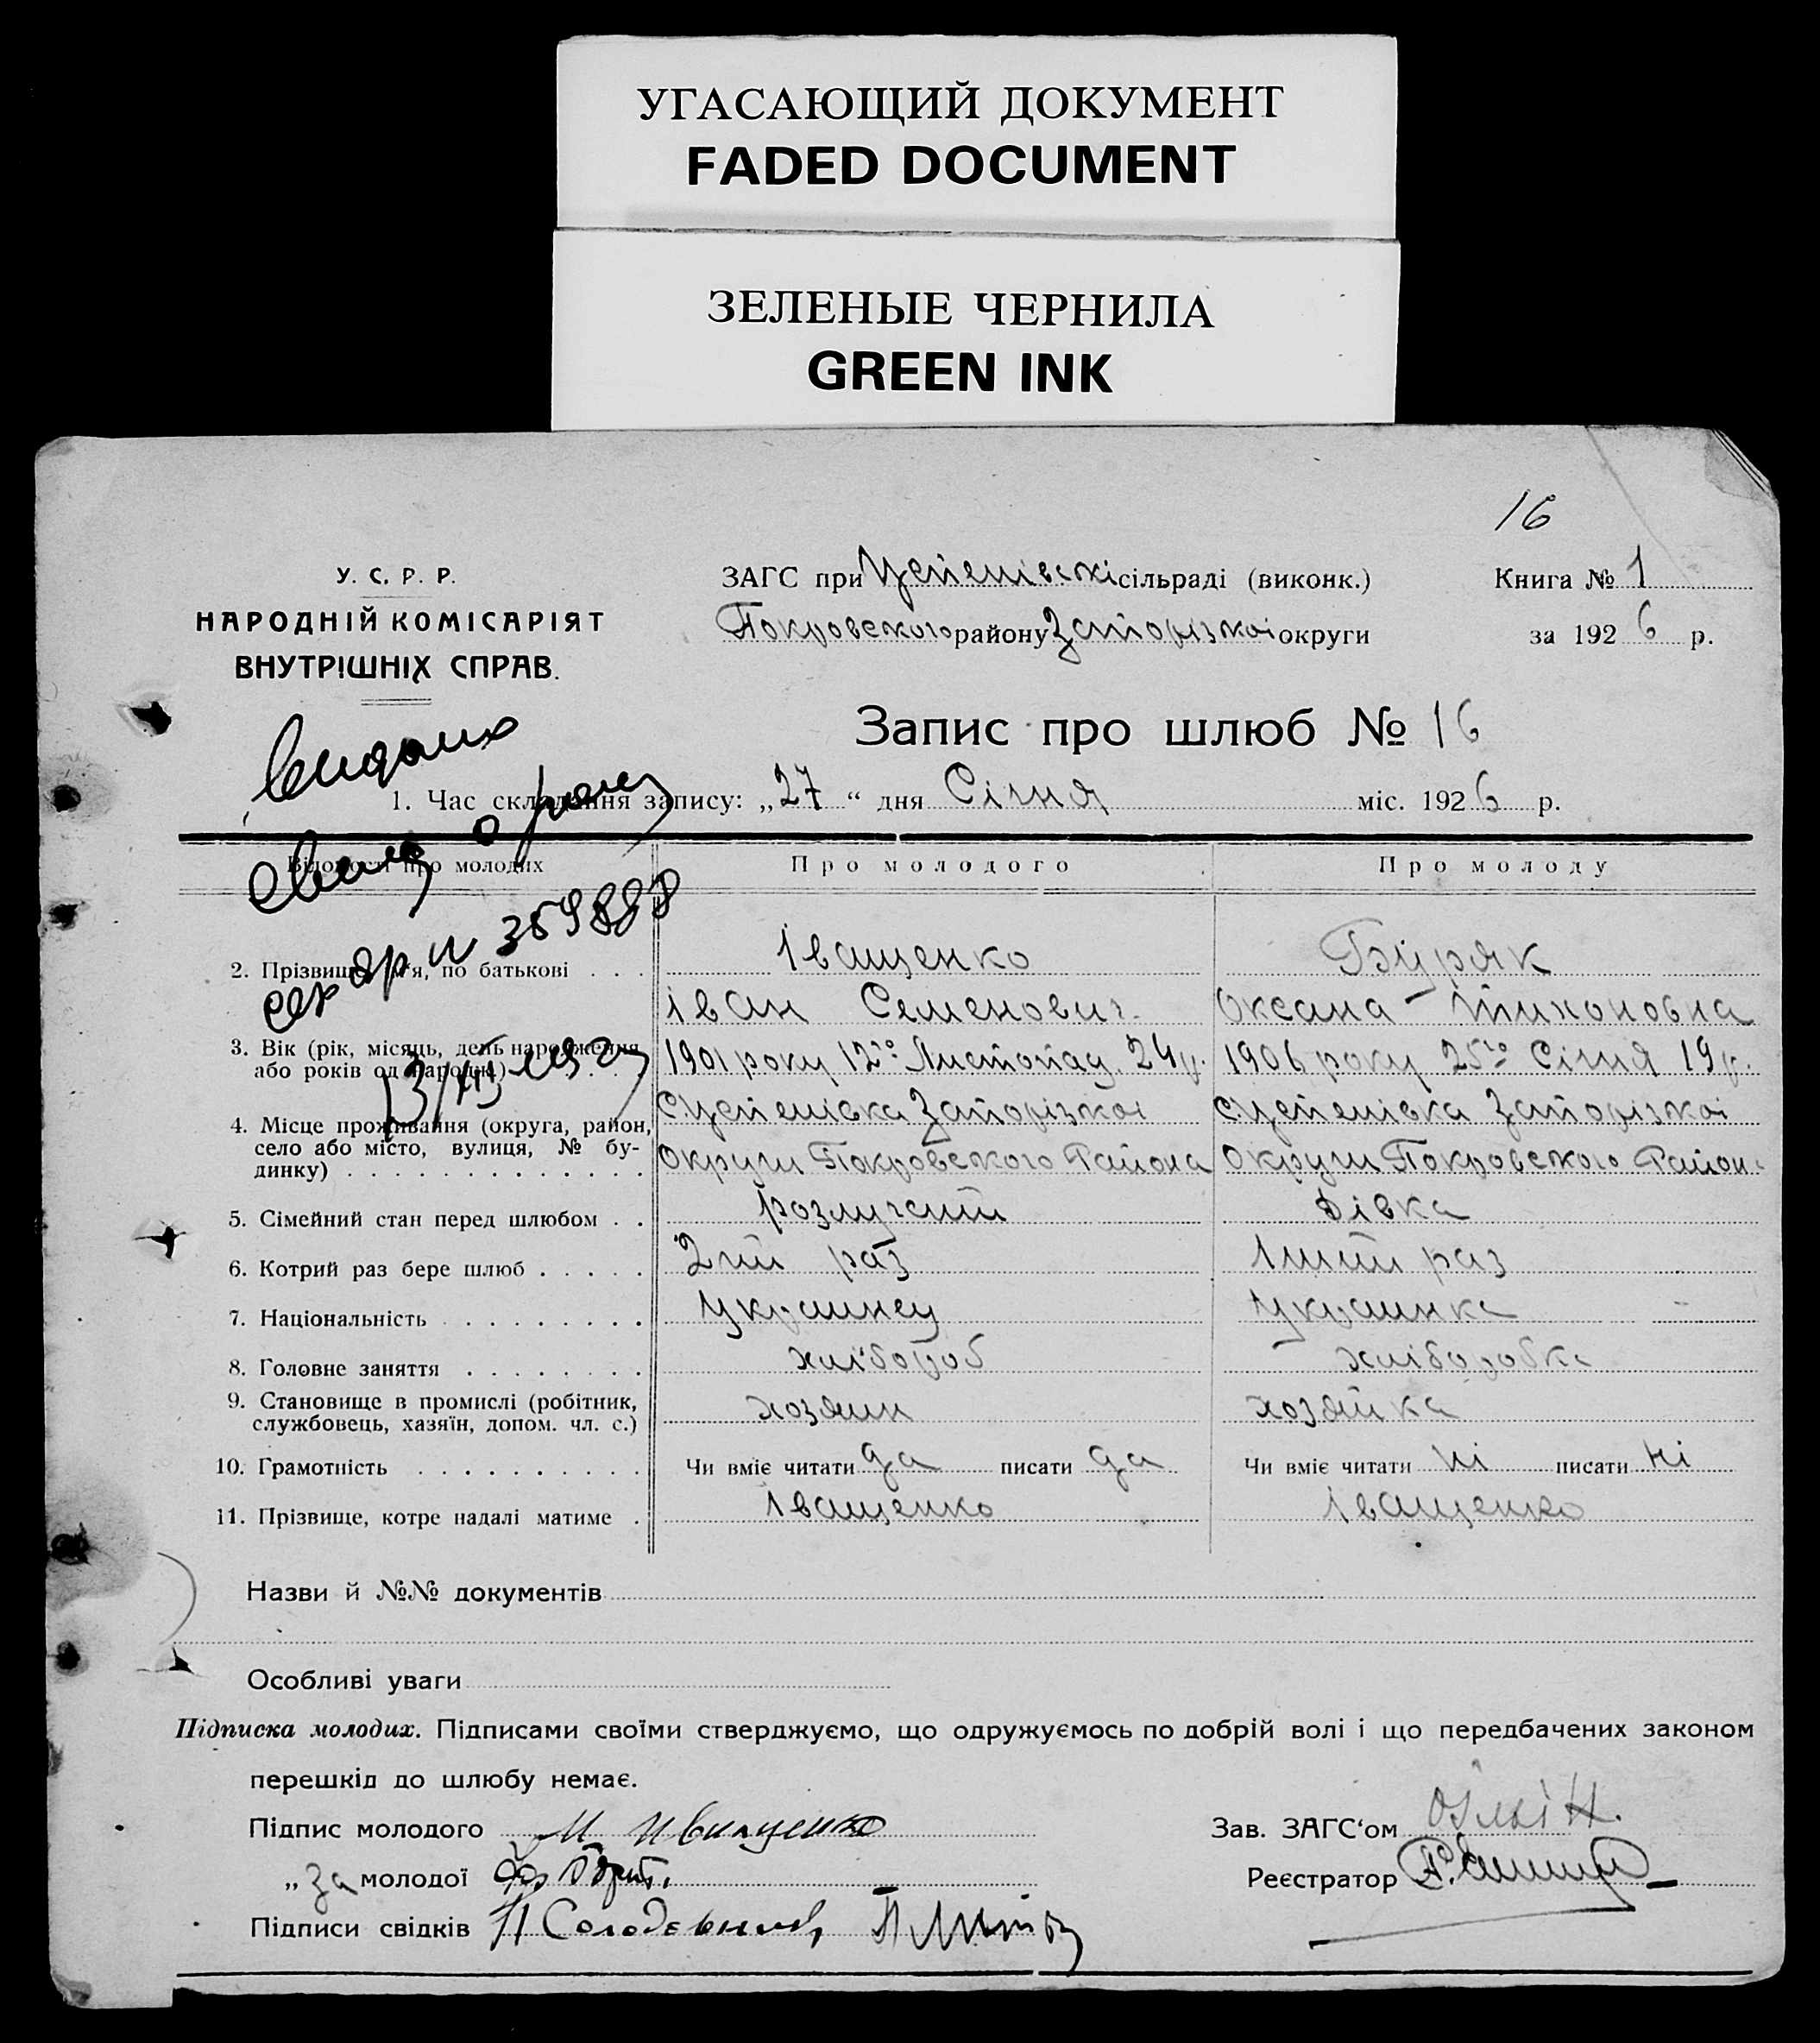 УГАСАЮЩИЙ ДОКУМЕНТ
FADED DOCUMENT
ЗЕЛЕНЫЕ ЧЕРНИЛА
GREEN INK
16
У. С. Р. Р.
НАРОДНІЙ КОМІСАРІЯТ
ВНУТРІШНІХ СПРАВ.
ЗАГС при Успенівскі сільраді (виконк.)
Покровского району Запорізкоі округи
Книга № 1
за 1926 р.
Запис про шлюб № 16
1. Час складання запису: „27“ дня Січня міс. 1926 р.
Відомості про молодих
Про молодого
Про молоду
359888
2. Прізвище, ім'я, по батькові
Іващенко
Буряк
Іван Семенович
Оксана Тихоновна
3. Вік (рік, місяць, день народження або років од народж.)
1901 року 12го Листопад. 24 р.
1906 року 25го Січня 19 р.
4. Місце проживання (округа, район, село або місто, вулиця, № будинку)
с. Успенівка Запорізкоі
с. Успенівка Запорізкоі
округи Покровского Района
округи Покровского Район
5. Сімейний стан перед шлюбом
розлучений
дівка
6. Котрий раз бере шлюб
2гий раз
1ший раз
7. Національність
Украинец
Украинка
8. Головне заняття
хлібороб
хліборобка
9. Становище в промислі (робітник, службовець, хазяїн, допом. чл. с.)
хозяин
хозяйка
10. Грамотність
Чи вміє читати да писати да
Чи вміє читати ні писати ні
11. Прізвище, котре надалі матиме
Іващенко
Іващенко
Назви й №№ документів
Особливі уваги
Підписка молодих. Підписами своїми стверджуємо, що одружуємось по добрій волі і що передбачених законом
перешкід до шлюбу немає.
Підпис молодого И Иващенко
Зав. ЗАГС‘ом
„ за молодої
Реєстратор
Підписи свідків